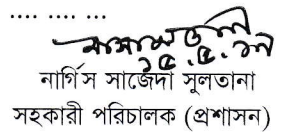 .... .... ...
১৫.৫.১৭
নার্গিস সাজেদা সুলতানা
সহকারী পরিচালক (প্রশাসন)